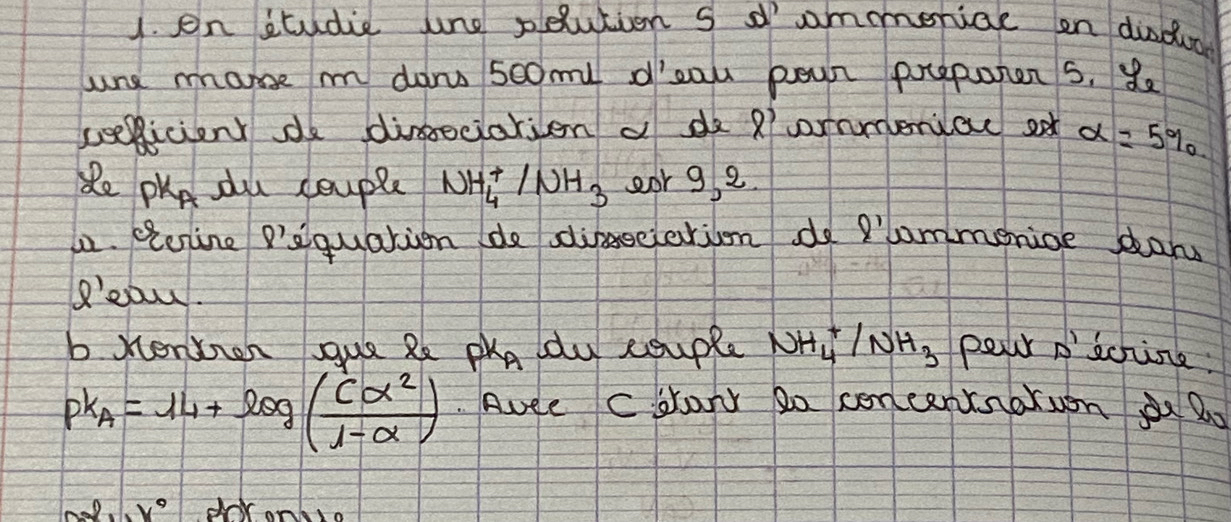 1. On étudie une solution S d'ammoniac en
une masse m dans 500ml d'eau pour préparer S. Le
coefficient de dissociation α de l'ammoniac est α = 5%.
Le pKA du couple NH4+/NH3 est 9,2.
a. Ecrire l'équation de dissociation de l'ammoniac dans
l'eau.
b. Montrer que le pKA du couple NH4+/NH3 peut s'écrire :
pKA = 14 + log(Cα²/(1-α)). Avec C étant la concentration de la
obtenue